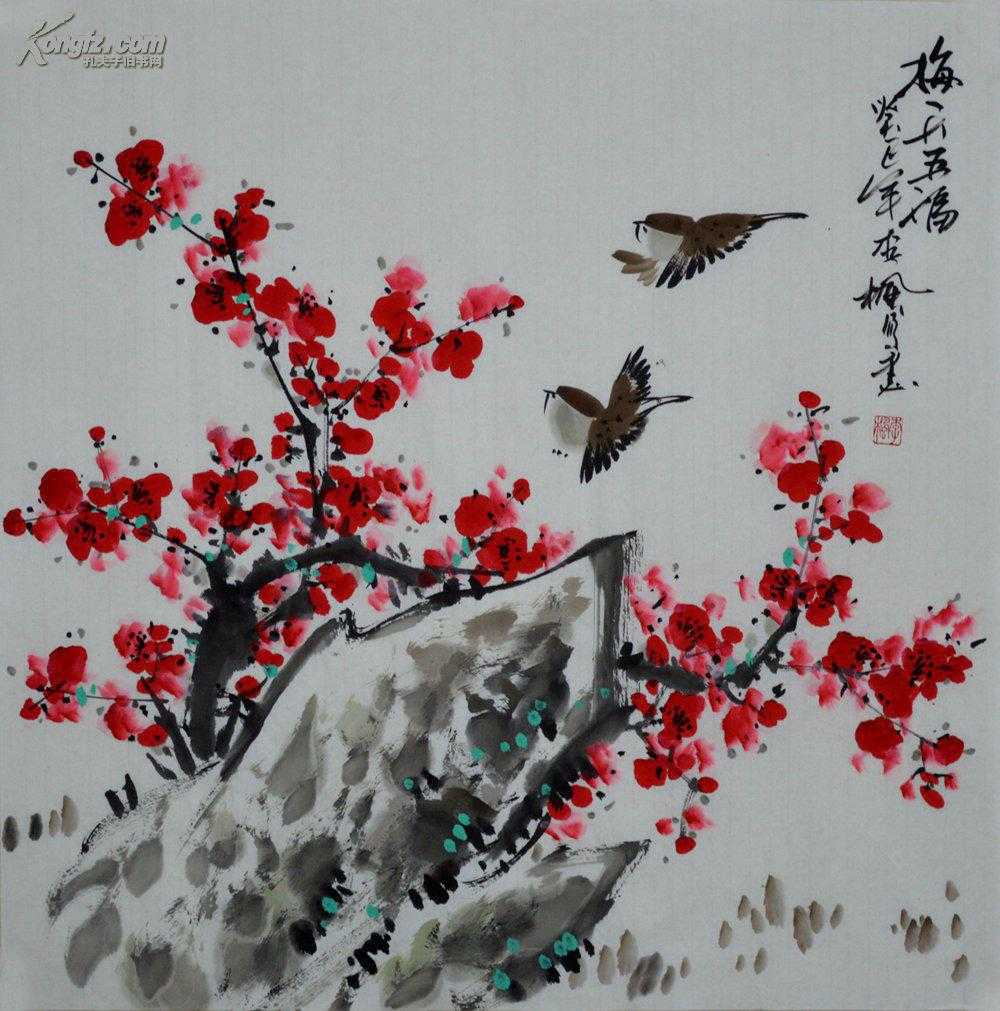 Kongfz.com
孔夫子旧书网
梅开五福
癸巳年李枫写意